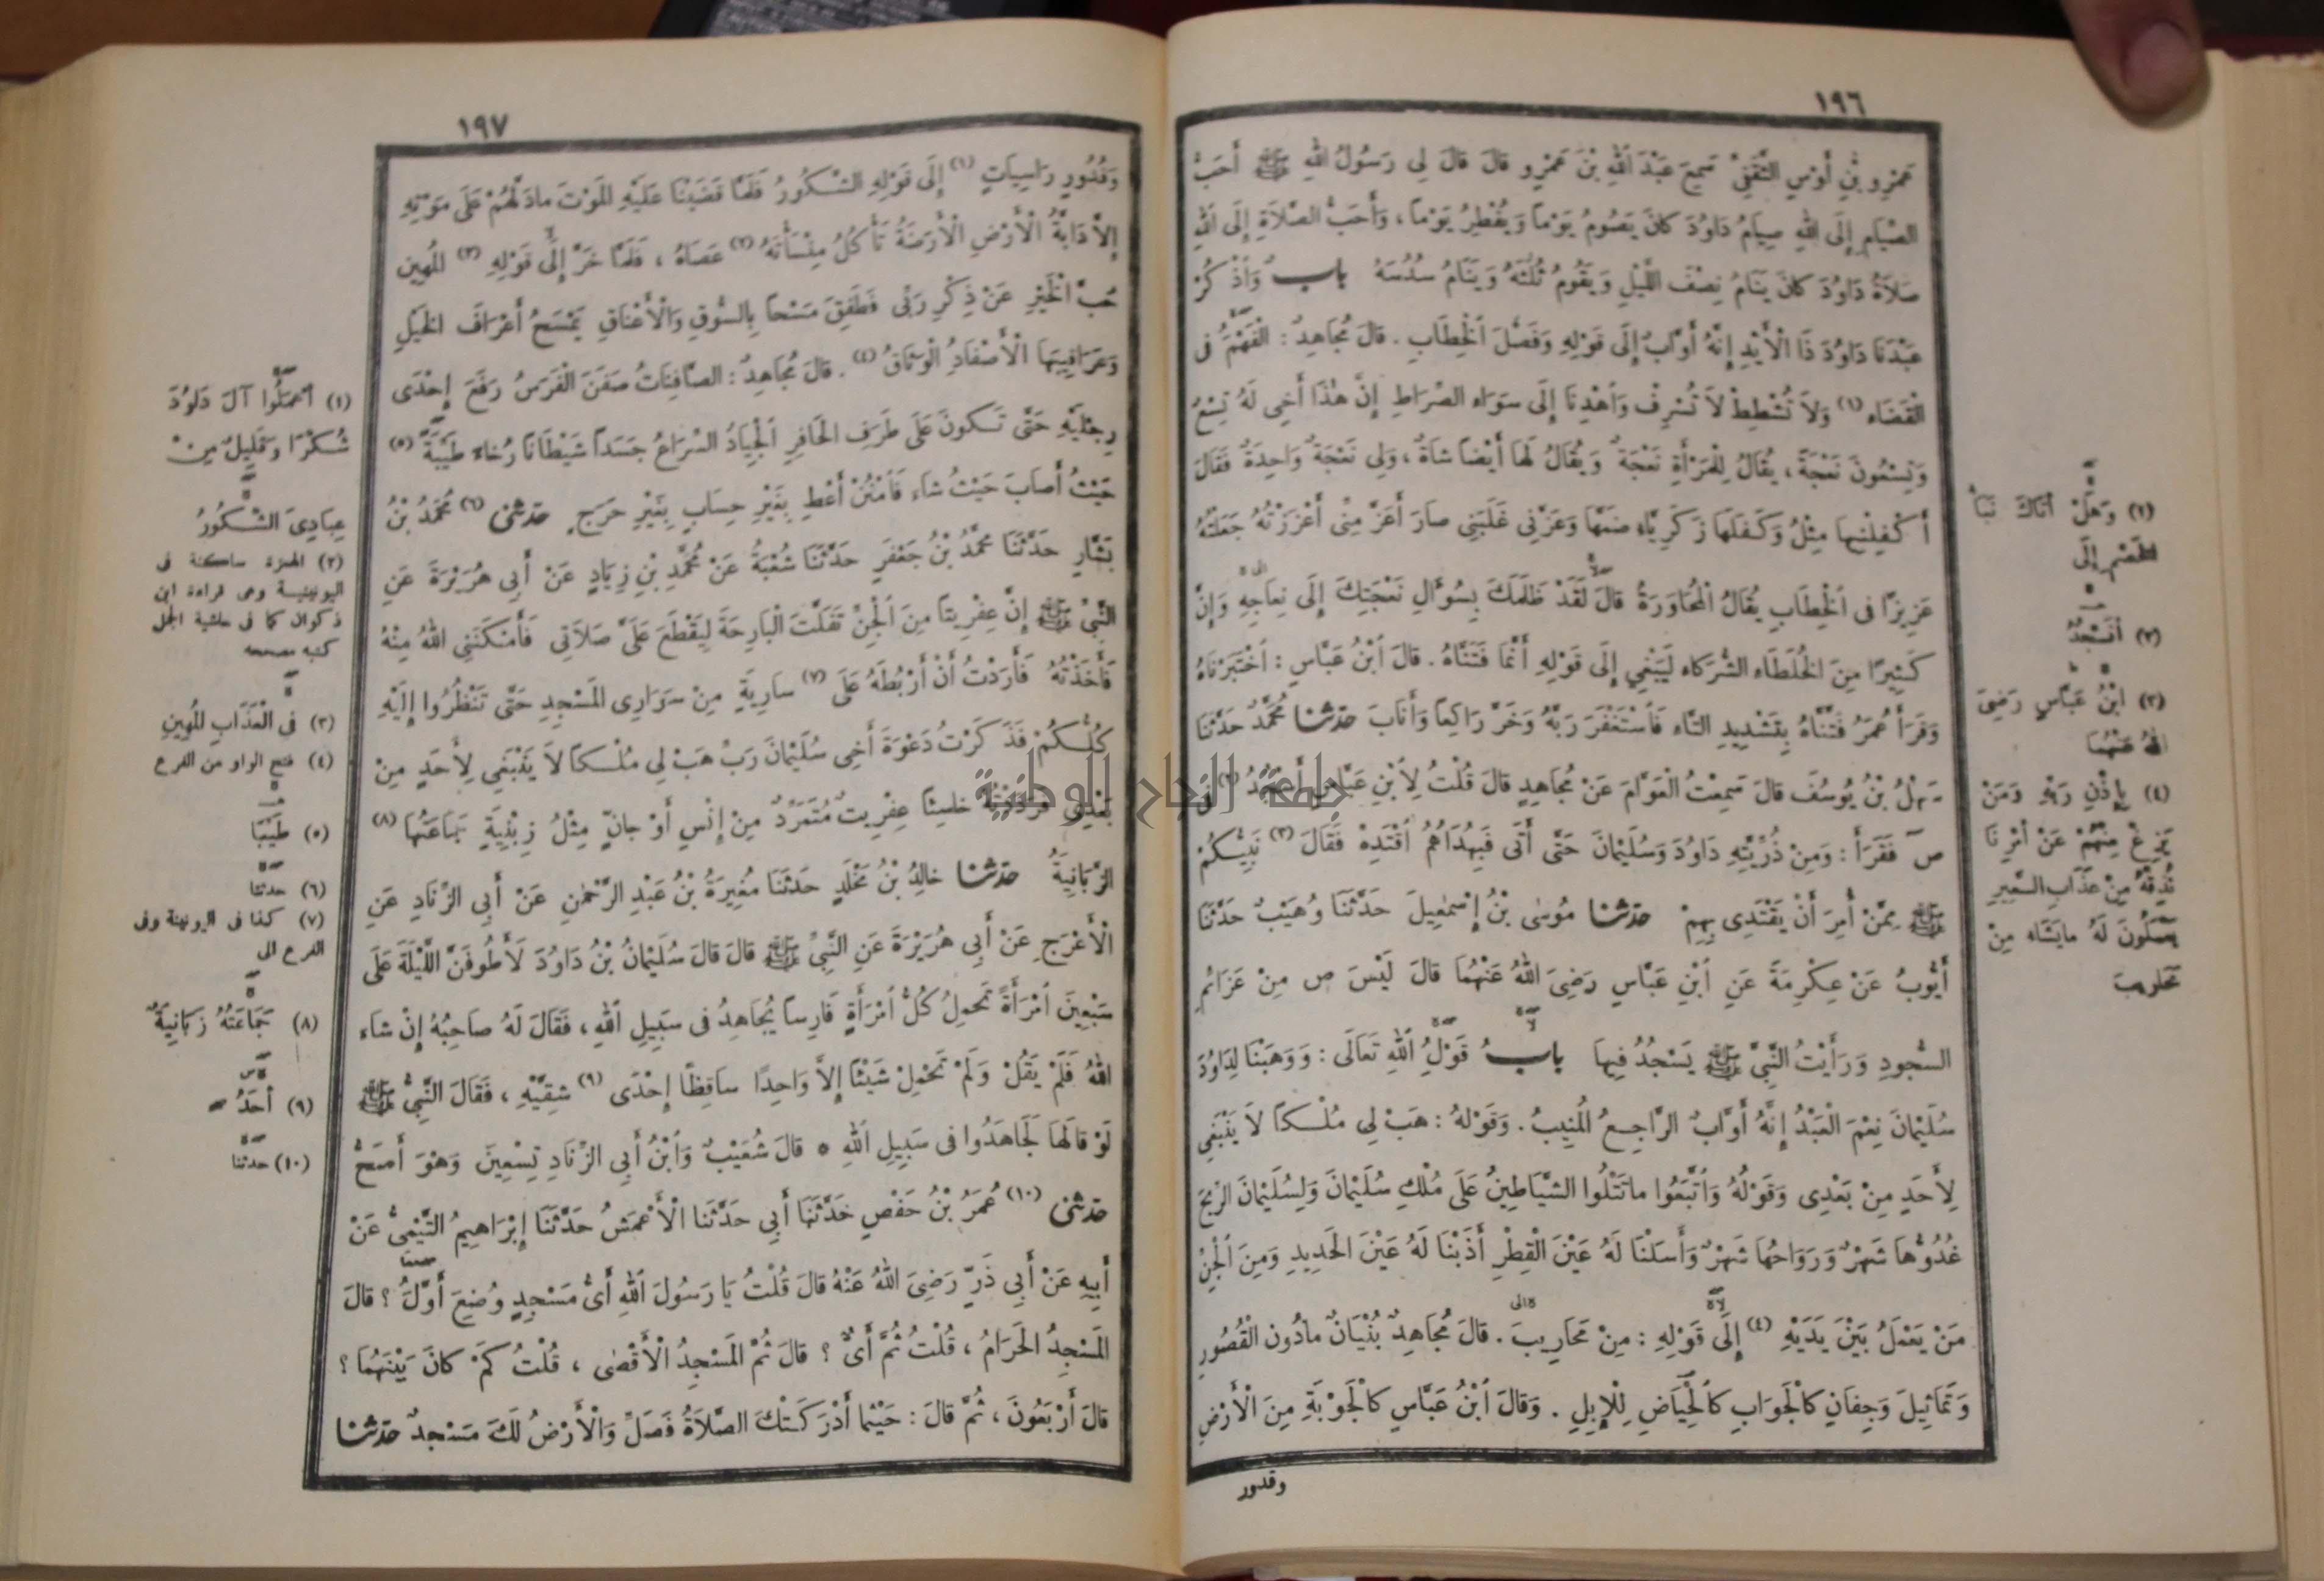 ١٩٦
عَمْرِو بْنِ أَوْسٍ الثَّقَفِيِّ سَمِعَ عَبْدَ اللهِ بْنَ عَمْرٍو قَالَ قَالَ لِي رَسُولُ اللهِ ﷺ أَحَبُّ
الصِّيَامِ إِلَى اللهِ صِيَامُ دَاوُدَ كَانَ يَصُومُ يَوْماً وَيُفْطِرُ يَوْماً ، وَأَحَبُّ الصَّلَاةِ إِلَى اللهِ
صَلَاةُ دَاوُدَ كَانَ يَنَامُ نِصْفَ اللَّيْلِ وَيَقُومُ ثُلُثَهُ وَيَنَامُ سُدُسَهُ بابٌ وَاذْكُرْ
عَبْدَنَا دَاوُدَ ذَا الْأَيْدِ إِنَّهُ أَوَّابٌ إِلَى قَوْلِهِ وَفَصْلَ الْخِطَابِ . قَالَ مُجَاهِدٌ : الْفَهْمُ فِي
الْقَضَاءِ (١) وَلَا تُشْطِطْ لَا تُسْرِفْ وَاهْدِنَا إِلَى سَوَاءِ الصِّرَاطِ إِنَّ هٰذَا أَخِي لَهُ تِسْعٌ
وَتِسْعُونَ نَعْجَةً ، يُقَالُ لِلْمَرْأَةِ نَعْجَةٌ وَيُقَالُ لَهَا أَيْضاً شَاةٌ ، وَلِي نَعْجَةٌ وَاحِدَةٌ فَقَالَ
أَكْفِلْنِيهَا مِثْلُ وَكَفَلَهَا زَكَرِيَّاءُ ضَمَّهَا وَعَزَّنِي غَلَبَنِي صَارَ أَعَزَّ مِنِّي أَعْزَزْتُهُ جَعَلْتُهُ
عَزِيزًا فِي الْخِطَابِ يُقَالُ الْمُحَاوَرَةُ قَالَ لَقَدْ ظَلَمَكَ بِسُؤَالِ نَعْجَتِكَ إِلَى نِعَاجِهِ وَإِنَّ
كَثِيرًا مِنَ الْخُلَطَاءِ الشُّرَكَاءِ لَيَبْغِي إِلَى قَوْلِهِ أَنَّمَا فَتَنَّاهُ . قَالَ ابْنُ عَبَّاسٍ : اخْتَبَرْنَاهُ
وَقَرَأَ عُمَرُ فَتَّنَّاهُ بِتَشْدِيدِ التَّاءِ فَاسْتَغْفَرَ رَبَّهُ وَخَرَّ رَاكِعاً وَأَنَابَ حَدَّثَنَا مُحَمَّدٌ حَدَّثَنَا
سَهْلُ بْنُ يُوسُفَ قَالَ سَمِعْتُ الْعَوَّامَ عَنْ مُجَاهِدٍ قَالَ قُلْتُ لِابْنِ عَبَّاسٍ أَسْجُدُ (٢) فِي
صٓ فَقَرَأَ : وَمِنْ ذُرِّيَّتِهِ دَاوُدَ وَسُلَيْمَانَ حَتَّى أَتَى فَبِهُدَاهُمُ اقْتَدِهْ فَقَالَ (٣) نَبِيُّكُمْ
ﷺ مِمَّنْ أُمِرَ أَنْ يَقْتَدِيَ بِهِمْ حَدَّثَنَا مُوسَى بْنُ إِسْمٰعِيلَ حَدَّثَنَا وُهَيْبٌ حَدَّثَنَا
أَيُّوبُ عَنْ عِكْرِمَةَ عَنِ ابْنِ عَبَّاسٍ رَضِيَ اللهُ عَنْهُمَا قَالَ لَيْسَ ص مِنْ عَزَائِمِ
السُّجُودِ وَرَأَيْتُ النَّبِيَّ ﷺ يَسْجُدُ فِيهَا بابُ قَوْلِ اللهِ تَعَالَى : وَوَهَبْنَا لِدَاوُدَ
سُلَيْمَانَ نِعْمَ الْعَبْدُ إِنَّهُ أَوَّابٌ الرَّاجِعُ الْمُنِيبُ . وَقَوْلُهُ : هَبْ لِي مُلْكاً لَا يَنْبَغِي
لِأَحَدٍ مِنْ بَعْدِي وَقَوْلُهُ وَاتَّبَعُوا مَا تَتْلُوا الشَّيَاطِينُ عَلَى مُلْكِ سُلَيْمَانَ وَلِسُلَيْمَانَ الرِّيحَ
غُدُوُّهَا شَهْرٌ وَرَوَاحُهَا شَهْرٌ وَأَسَلْنَا لَهُ عَيْنَ الْقِطْرِ أَذَبْنَا لَهُ عَيْنَ الْحَدِيدِ وَمِنَ الْجِنِّ
مَنْ يَعْمَلُ بَيْنَ يَدَيْهِ (٤) إِلَى قَوْلِهِ : مِنْ مَحَارِيبَ . قَالَ مُجَاهِدٌ بُنْيَانٌ مَادُونَ الْقُصُورِ
وَتَمَاثِيلَ وَجِفَانٍ كَالْجَوَابِ كَالْحِيَاضِ لِلْإِبِلِ . وَقَالَ ابْنُ عَبَّاسٍ كَالْجَوْبَةِ مِنَ الْأَرْضِ
وقدور
(١) وَهَلْ أَتَاكَ نَبَأُ
الْخَصْمِ إِلَى
(٢) أَنَسْجُدُ
(٣) ابْنُ عَبَّاسٍ رَضِيَ
اللهُ عَنْهُمَا
(٤) بِإِذْنِ رَبِّهِ وَمَنْ
يَزِغْ مِنْهُمْ عَنْ أَمْرِنَا
نُذِقْهُ مِنْ عَذَابِ السَّعِيرِ
يَعْمَلُونَ لَهُ مَا يَشَاءُ مِنْ
مَحَارِيبَ
١٩٧
وَقُدُورٍ رَاسِيَاتٍ (١) إِلَى قَوْلِهِ الشَّكُورُ فَلَمَّا قَضَيْنَا عَلَيْهِ الْمَوْتَ مَادَلَّهُمْ عَلَى مَوْتِهِ
إِلَّا دَابَّةُ الْأَرْضِ الْأَرَضَةُ تَأْكُلُ مِنْسَأْتَهُ (٢) عَصَاهُ ، فَلَمَّا خَرَّ إِلَى قَوْلِهِ (٣) الْمُهِينِ
حُبَّ الْخَيْرِ عَنْ ذِكْرِ رَبِّي فَطَفِقَ مَسْحاً بِالسُّوقِ وَالْأَعْنَاقِ يَمْسَحُ أَعْرَافَ الْخَيْلِ
وَعَرَاقِيبَهَا الْأَصْفَادُ الْوَثَاقُ (٤) . قَالَ مُجَاهِدٌ : الصَّافِنَاتُ صَفَنَ الْفَرَسُ رَفَعَ إِحْدَى
رِجْلَيْهِ حَتَّى تَكُونَ عَلَى طَرَفِ الْحَافِرِ الْجِيَادُ السِّرَاعُ جَسَداً شَيْطَانًا رُخَاءً طَيِّبَةً (٥)
حَيْثُ أَصَابَ حَيْثُ شَاءَ فَامْنُنْ أَعْطِ بِغَيْرِ حِسَابٍ بِغَيْرِ حَرَجٍ . حَدَّثَنِي (٦) مُحَمَّدُ بْنُ
بَشَّارٍ حَدَّثَنَا مُحَمَّدُ بْنُ جَعْفَرٍ حَدَّثَنَا شُعْبَةُ عَنْ مُحَمَّدِ بْنِ زِيَادٍ عَنْ أَبِي هُرَيْرَةَ عَنِ
النَّبِيِّ ﷺ إِنَّ عِفْرِيتاً مِنَ الْجِنِّ تَفَلَّتَ الْبَارِحَةَ لِيَقْطَعَ عَلَيَّ صَلَاتِي فَأَمْكَنَنِي اللهُ مِنْهُ
فَأَخَذْتُهُ فَأَرَدْتُ أَنْ أَرْبُطَهُ عَلَى (٧) سَارِيَةٍ مِنْ سَوَارِي الْمَسْجِدِ حَتَّى تَنْظُرُوا إِلَيْهِ
كُلُّكُمْ فَذَكَرْتُ دَعْوَةَ أَخِي سُلَيْمَانَ رَبِّ هَبْ لِي مُلْكاً لَا يَنْبَغِي لِأَحَدٍ مِنْ
بَعْدِي فَرَدَدْتُهُ خَاسِئًا عِفْرِيتٌ مُتَمَرِّدٌ مِنْ إِنْسٍ أَوْ جَانٍّ مِثْلُ زِبْنِيَةٍ جَمَاعَتُهَا (٨)
الزَّبَانِيَةُ حَدَّثَنَا خَالِدُ بْنُ مَخْلَدٍ حَدَّثَنَا مُغِيرَةُ بْنُ عَبْدِ الرَّحْمٰنِ عَنْ أَبِي الزِّنَادِ عَنِ
الْأَعْرَجِ عَنْ أَبِي هُرَيْرَةَ عَنِ النَّبِيِّ ﷺ قَالَ قَالَ سُلَيْمَانُ بْنُ دَاوُدَ لَأَطُوفَنَّ اللَّيْلَةَ عَلَى
سَبْعِينَ امْرَأَةً تَحْمِلُ كُلُّ امْرَأَةٍ فَارِساً يُجَاهِدُ فِي سَبِيلِ اللهِ ، فَقَالَ لَهُ صَاحِبُهُ إِنْ شَاءَ
اللهُ فَلَمْ يَقُلْ وَلَمْ تَحْمِلْ شَيْئًا إِلَّا وَاحِدًا سَاقِطًا إِحْدَى (٩) شِقَّيْهِ ، فَقَالَ النَّبِيُّ ﷺ
لَوْ قَالَهَا لَجَاهَدُوا فِي سَبِيلِ اللهِ ٥ قَالَ شُعَيْبٌ وَابْنُ أَبِي الزِّنَادِ تِسْعِينَ وَهْوَ أَصَحُّ
حَدَّثَنِي (١٠) عُمَرُ بْنُ حَفْصٍ حَدَّثَنَا أَبِي حَدَّثَنَا الْأَعْمَشُ حَدَّثَنَا إِبْرَاهِيمُ التَّيْمِيُّ عَنْ
أَبِيهِ عَنْ أَبِي ذَرٍّ رَضِيَ اللهُ عَنْهُ قَالَ قُلْتُ يَا رَسُولَ اللهِ أَيُّ مَسْجِدٍ وُضِعَ أَوَّلُ ؟ قَالَ
الْمَسْجِدُ الْحَرَامُ ، قُلْتُ ثُمَّ أَيٌّ ؟ قَالَ ثُمَّ الْمَسْجِدُ الْأَقْصٰى ، قُلْتُ كَمْ كَانَ بَيْنَهُمَا ؟
قَالَ أَرْبَعُونَ ، ثُمَّ قَالَ : حَيْثُمَا أَدْرَكَتْكَ الصَّلَاةُ فَصَلِّ وَالْأَرْضُ لَكَ مَسْجِدٌ حَدَّثَنَا
(١) اعْمَلُوا آلَ دَاوُدَ
شُكْرًا وَقَلِيلٌ مِنْ
عِبَادِيَ الشَّكُورُ
(٢) الهمزة ساكنة فى
اليونينية وهى قراءة ابن
ذكوان كما فى حاشية الجمل
كتبه مصححه
(٣) فِي الْعَذَابِ الْمُهِينِ
(٤) فتح الواو من الفرع
(٥) طَيِّبًا
(٦) حدثنا
(٧) كذا فى اليونينية وفى
الفرع الى
(٨) جَمَاعَتُهُ زَبَانِيَةٌ
(٩) أَحَدُ
(١٠) حدثنا
جامعة النجاح الوطنية